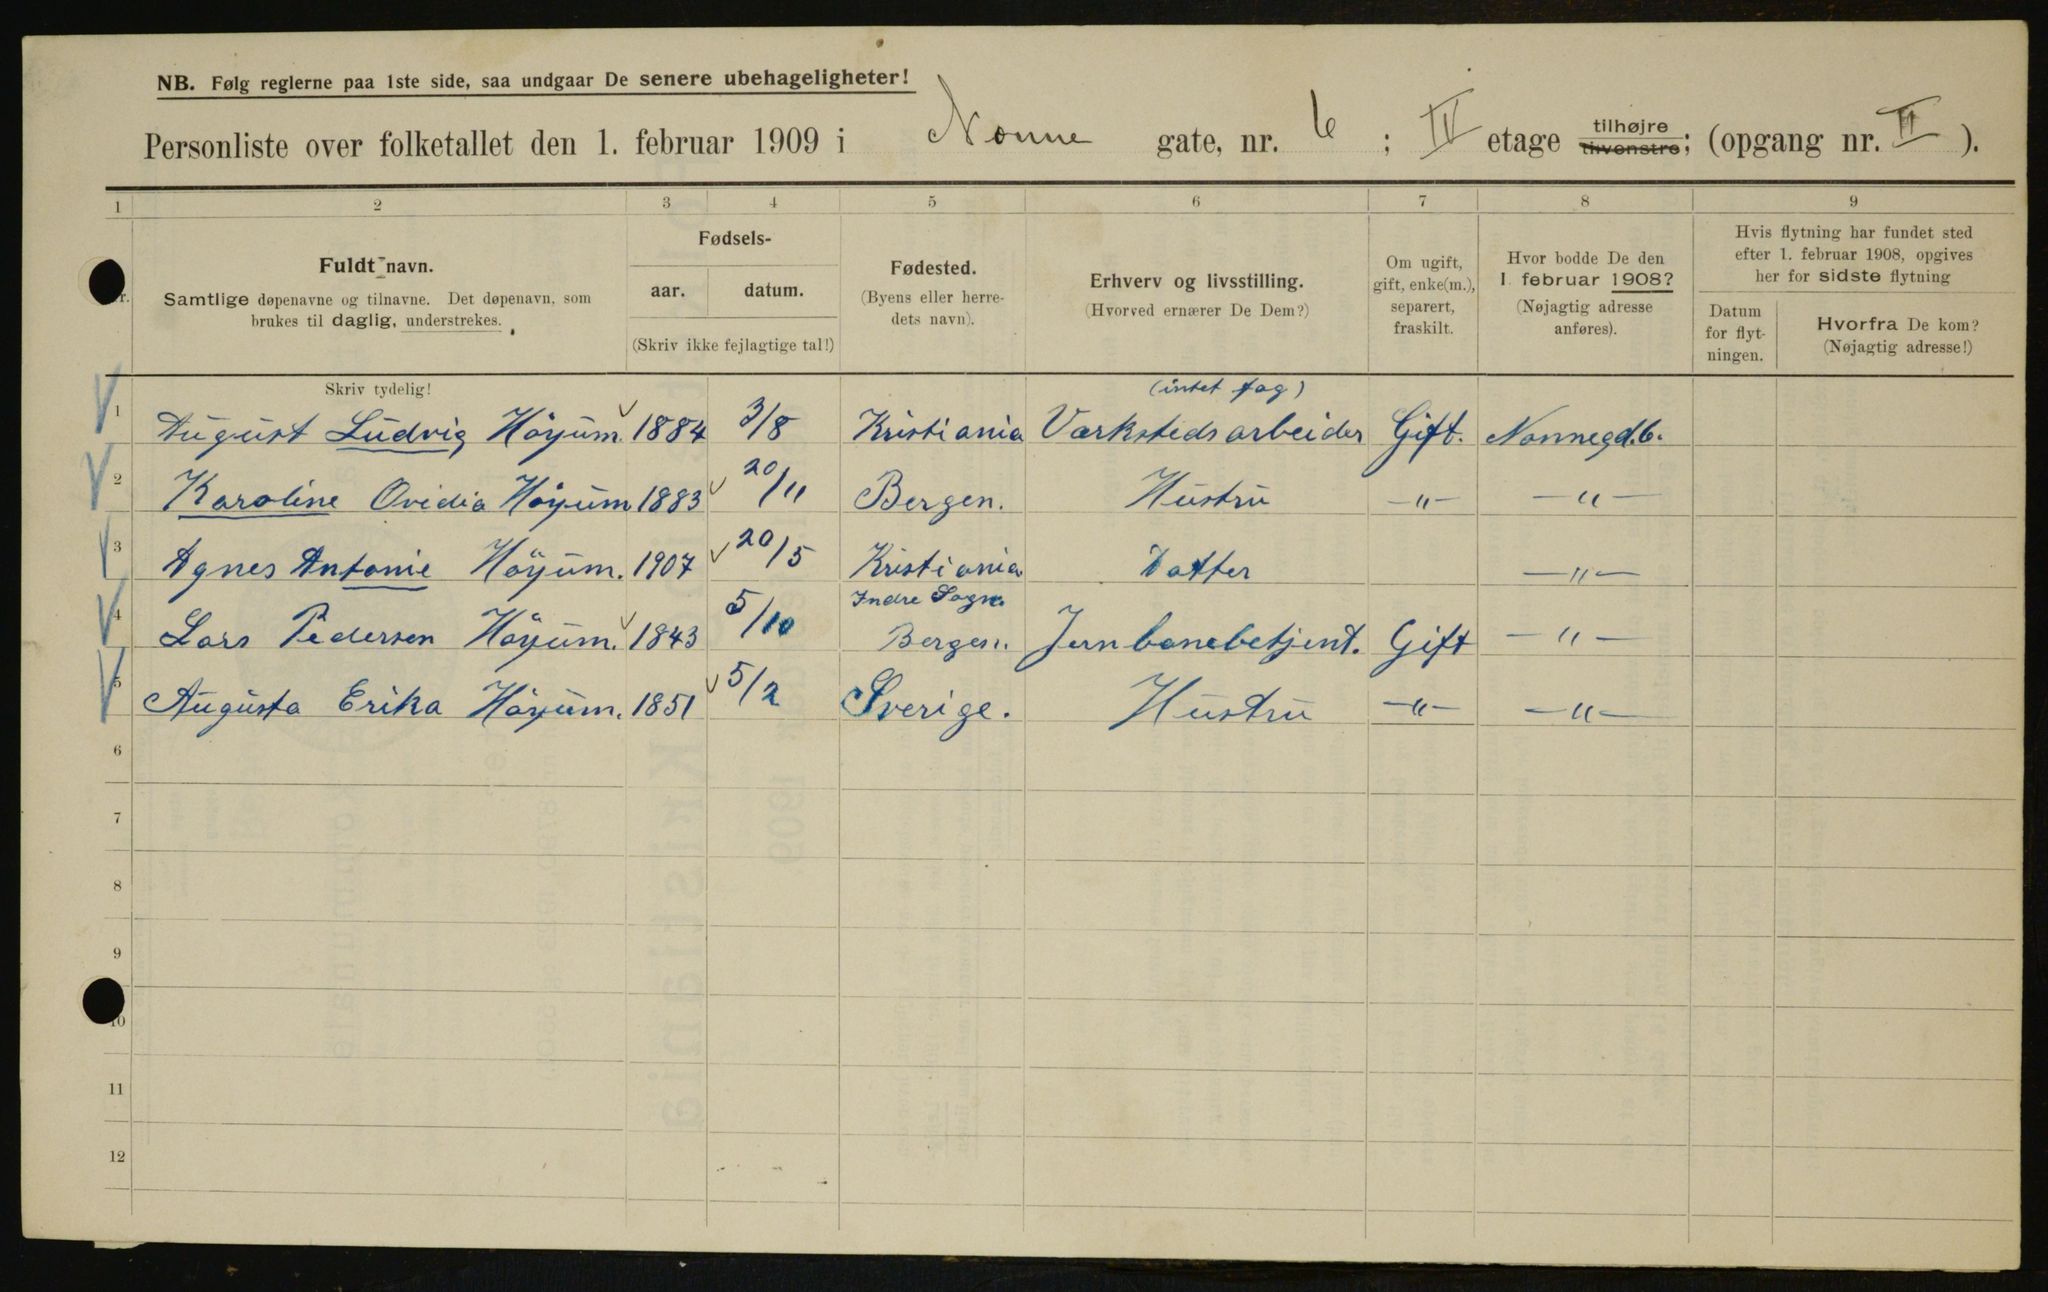 NB. Følg reglerne paa 1ste side, saa undgaar De senere ubehageligheter!
Personliste over folketallet den 1. februar 1909 i Nonne gate, nr. 6; IV etage tilhøjre tilvenstre; (opgang nr. II).
1 2 3 4 5 6 7 8 9
Nr.
Fuldt navn.
Samtlige døpenavne og tilnavne. Det døpenavn, som
brukes til daglig, understrekes.
Fødsels-
aar. datum.
(Skriv ikke fejlagtige tal!)
Fødested.
(Byens eller herre-
dets navn).
Erhverv og livsstilling.
(Hvorved ernærer De Dem?)
Om ugift,
gift, enke(m.),
separert,
fraskilt.
Hvor bodde De den
1. februar 1908?
(Nøjagtig adresse
anføres).
Hvis flytning har fundet sted
efter 1. februar 1908, opgives
her for sidste flytning
Datum
for flyt-
ningen.
Hvorfra De kom?
(Nøjagtig adresse!)
Skriv tydelig!
(intet fag)
1 August Ludvig Höyum. 1884 3/8 Kristiania Værkstedsarbeider Gift. Nonnegd. 6.
2 Karoline Ovidia Höyum 1883 20/11 Bergen. Hustru —"— —"—
3 Agnes Antonie Höyum. 1907 20/5 Kristiania Datter —"—
Indre Sogn.
4 Lars Pedersen Höyum. 1843 5/10 Bergen. Jernbanebetjent. Gift —"—
5 Augusta Erika Höyum. 1851 5/2 Sverige. Hustru —"— —"—
6
7
8
9
10
11
12